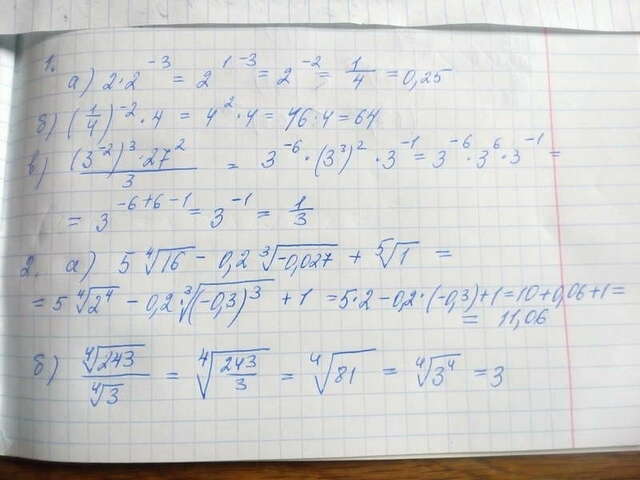 1.
а) 2·2⁻³ = 2¹⁻³ = 2⁻² = 1/4 = 0,25
б) (1/4)⁻² · 4 = 4² · 4 = 16 · 4 = 64
в) (3⁻²)³ · 27² / 3 = 3⁻⁶ · (3³)² · 3⁻¹ = 3⁻⁶ · 3⁶ · 3⁻¹ =
= 3⁻⁶⁺⁶⁻¹ = 3⁻¹ = 1/3
2. а) 5 ⁴√16 − 0,2 ³√−0,027 + ⁵√1 =
= 5 ⁴√2⁴ − 0,2 · ³√(−0,3)³ + 1 = 5·2 − 0,2·(−0,3) + 1 = 10 + 0,06 + 1 =
= 11,06
б) ⁴√243 / ⁴√3 = ⁴√(243/3) = ⁴√81 = ⁴√3⁴ = 3